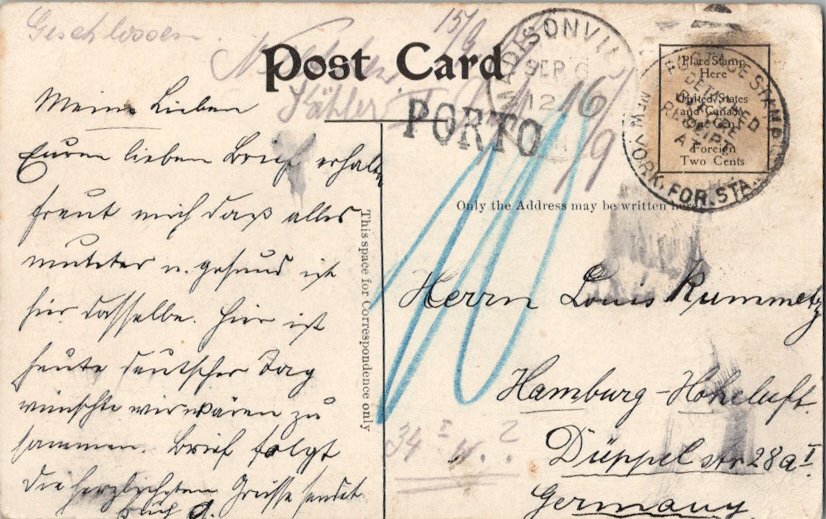 Geschlossen
15/9
Post Card
MADISONVIL
SEP 6
12
16/9
PORTO
POSTAGE STAMP
DETACHED
BEFORE
RECEIPT
AT
NEW YORK, FOR. STA.
Place Stamp
Here
United States
and Canada
One Cent
Foreign
Two Cents
Meine Lieben
Euren lieben Brief erhalten
freut mich daß alles
munter u. gesund ist
hier dasselbe. Hier ist
heute deutscher Tag
wünschte wir wären zu
sammen. Brief folgt
Die herzlichsten Grüsse sendet
Euch
This space for Correspondence only
Only the Address may be written here
10
Herrn Louis Rummetz
Hamburg-Hoheluft.
Düppelstr 28a I
Germany
34 I